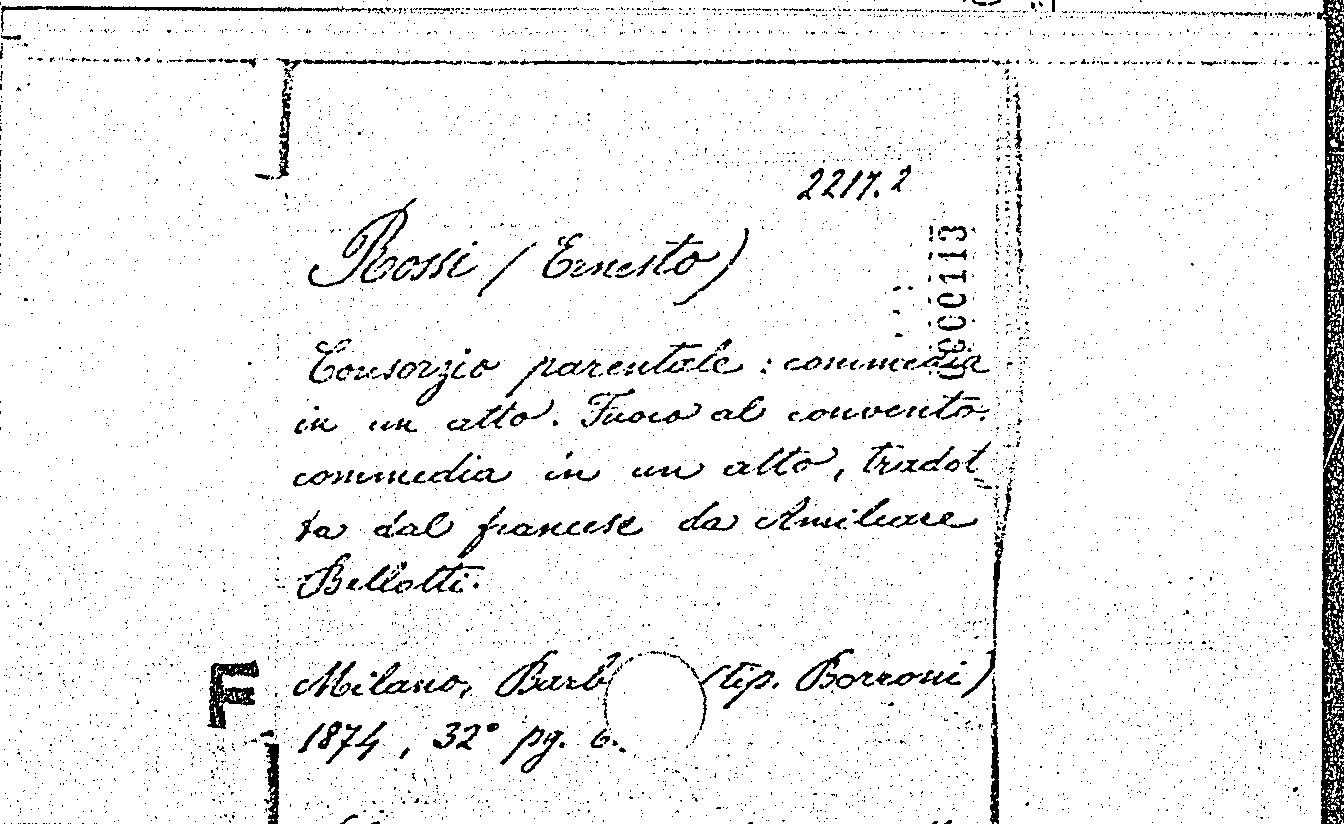 2217.2
Rossi (Ernesto)
000113
Consorzio parentale: commedia
in un atto. Fuoco al convento.
commedia in un atto, tradot_
ta dal francese da Amilcare
Bellotti.
F
Milano, (tip. Borroni)
1874, 32° pg.